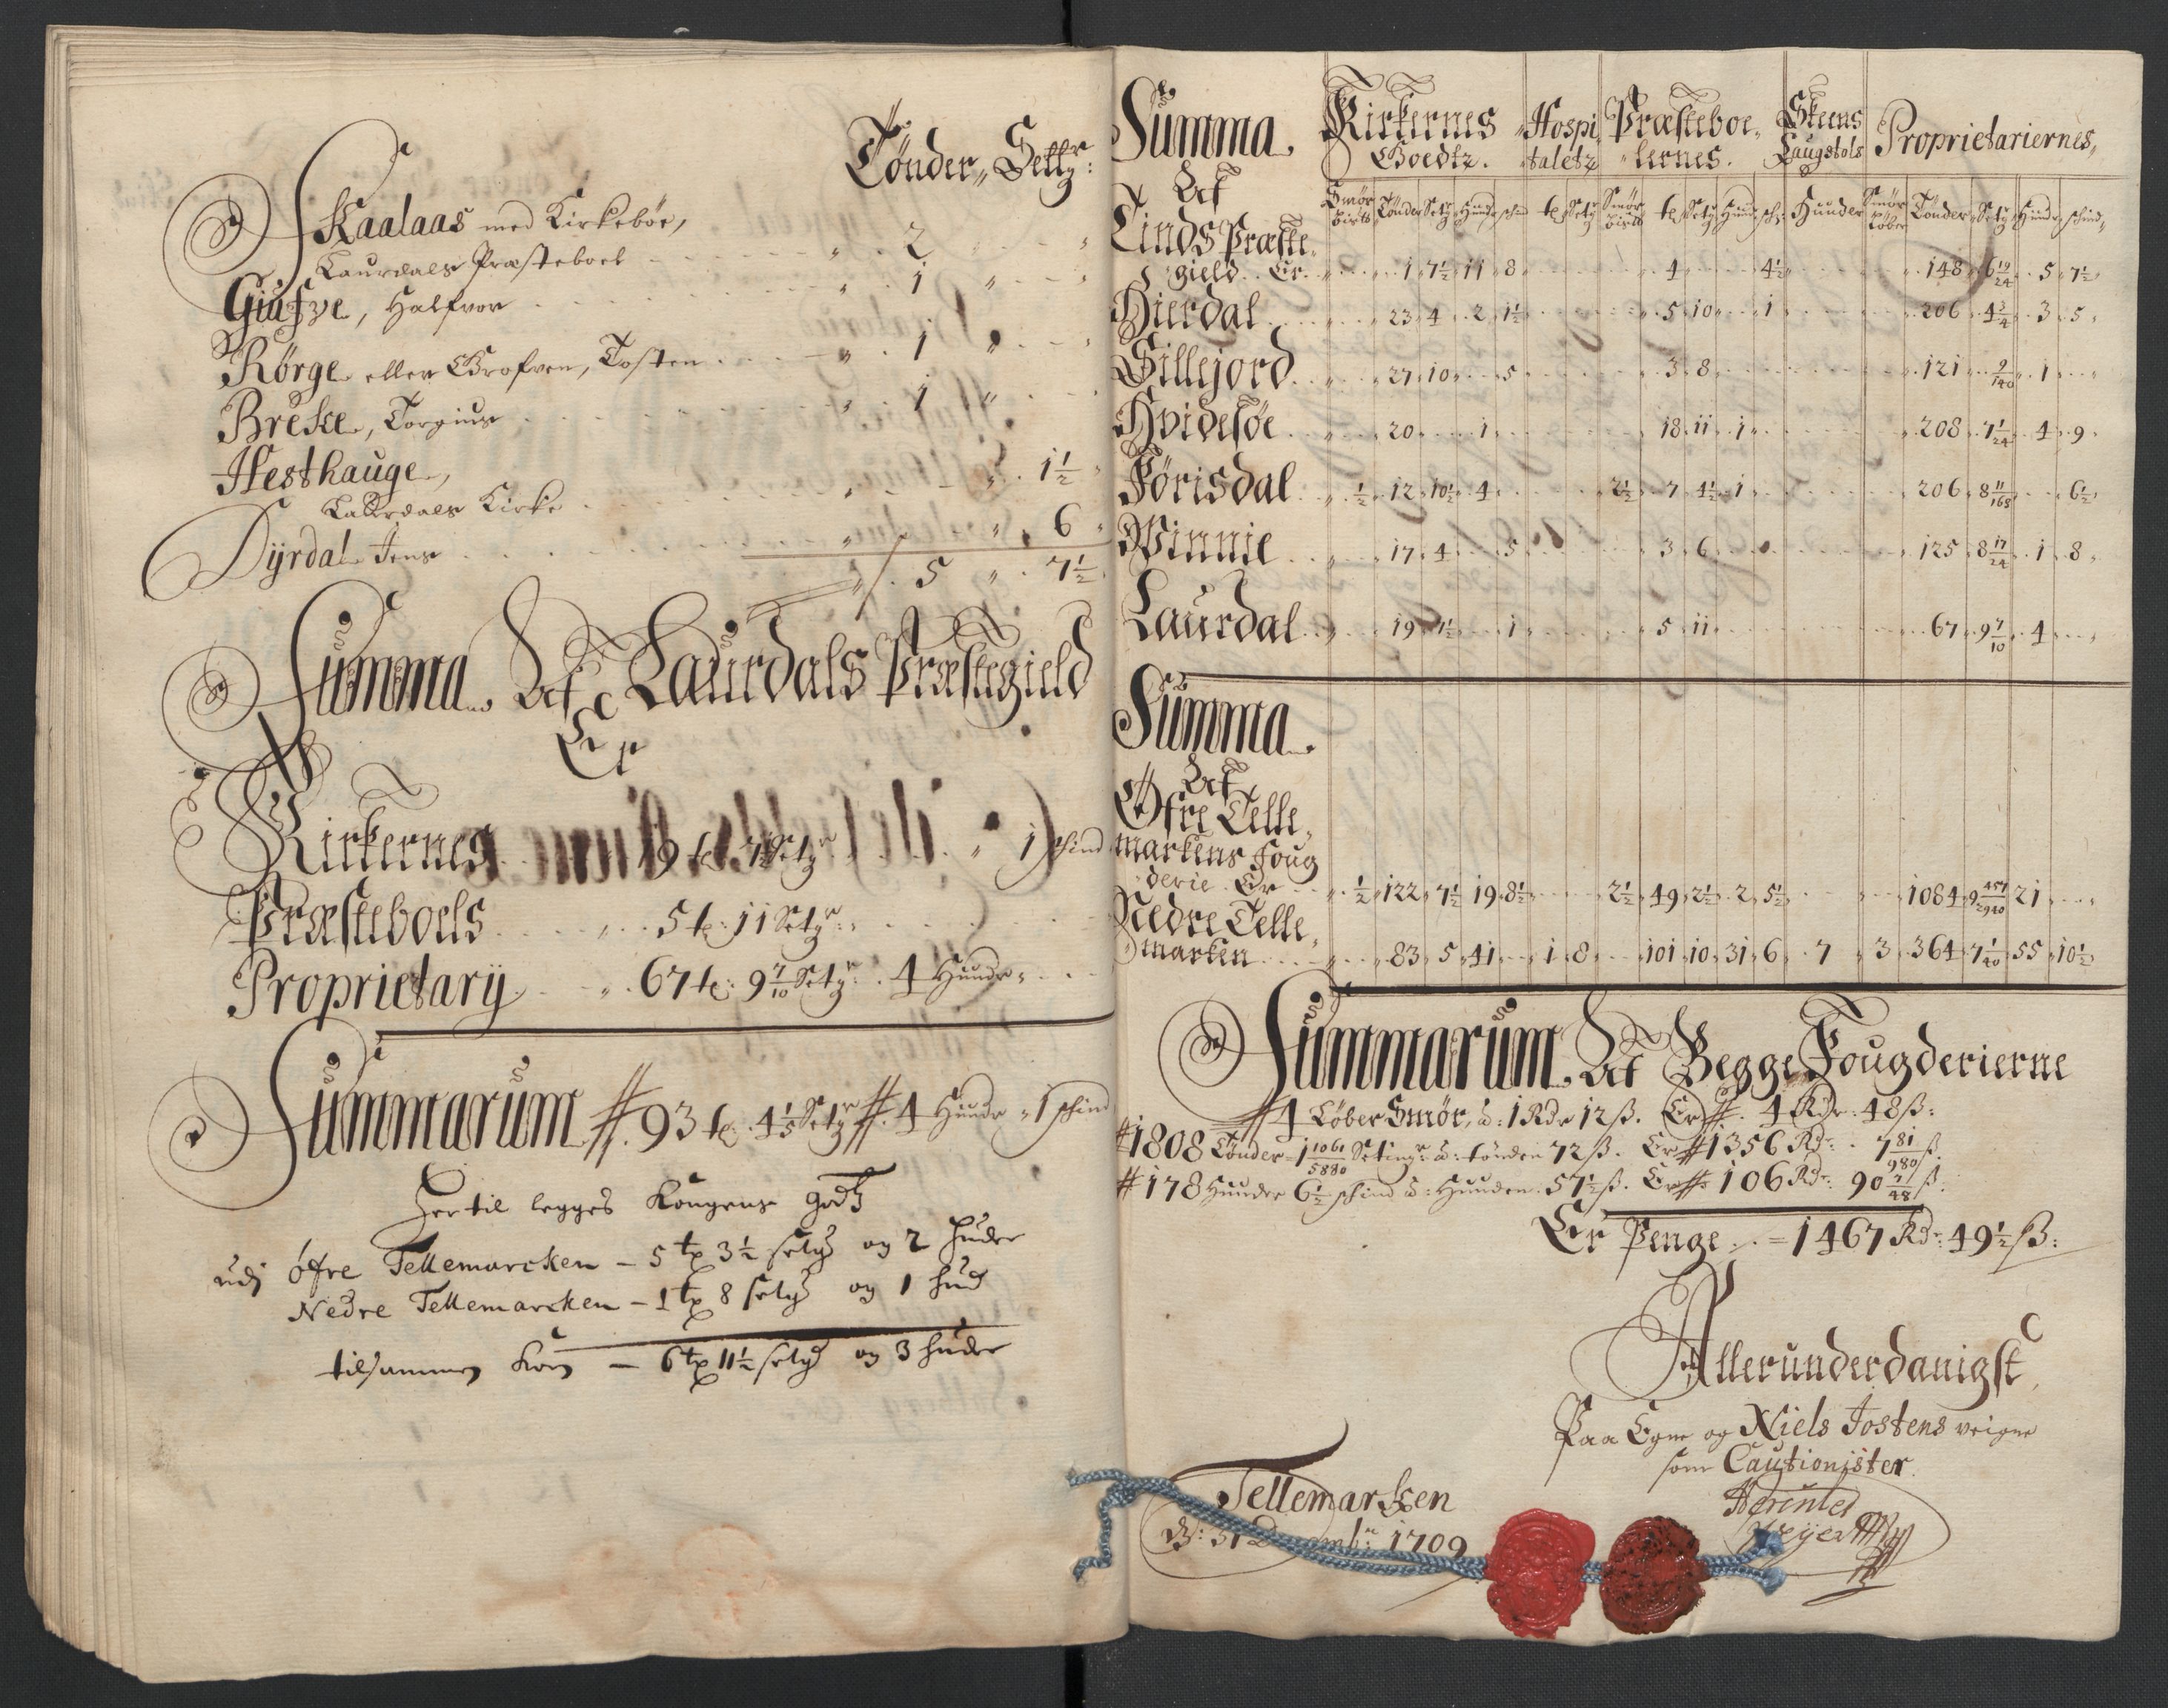 Tønder „ Settgr:
Skaalaas med Kirkebøe,
Laurdals Præsteboel „ 2 „
Giufve, Halfvor „ 1 „
Rørge eller Grofven, Tosten „ 1 „
Breke, Torgius „ 1 „
Hesthauge,
Laurdals Kirke „ „ 1½
Dyrdal Jens „ „ 6
5 „ 7½
Summa Af Laurdals Præstegield
Er
Kirkernes 19 te: 7½ Setgr „ 1 schind
Præsteboels 5 te: 11 Setgr:
Proprietarij 67 te: 9 7/10 Setgr: 4 Hunder
Summarum 93 te: 4 1/5 Setgr 4 Hunder „ 1 schind
Her til legges Kongens Godtz
udj Øfre Tellemarcken – 5 tp 3½ setgr og 2 huder
Nedre Tellemarcken – 1 tp 8 setgr og 1 hud
tilsammen Korn – 6 tp 11½ setgr og 3 huder
Summa. Kirkernes Goedtz. Hospitaletz Præsteboelernes. Skeens Laugstols Proprietariernes,
Af Smør Tønder Setgr Hunder schind te Setgr Smør te Setgr Hund sch: Hunder Smør Løber Tønder Setgr Hunder schind
Tinds Præste
gield. Er. 1 7½ 11 8 4 4½ 148 6 19/24 5 7½
Hierdal 23 4 2 1½ 5 10 1 206 4¾ 3 5
Sillejord 27 10 5 3 8 121 9/140 1
Hvidesøe 20 1 18 11 1 208 7 1/24 4 9
Førisdal ½ 12 10½ 4 2½ 7 4½ 1 206 8 11/168 6½
Winnie 17 4 5 3 6 125 8 17/24 1 8
Laurdal 19 7½ 1 5 11 67 9 7/10 4
Summa.
Af
Øfre Telle
markens Foug
derie. Er ½ 122 7½ 19 8½ 2½ 49 2½ 2 5½ 1084 9 457/2940 21
Nedre Telle
marken 83 5 41 1 8 101 10 31 6 7 3 364 7 1/40 55 10½
Summarum. Af Begge Fougderierne
4 Løber Smør, à: 1 Rdr 12 ß. Er 4 Rdr: 48 ß:
1808 Tønder 1 1061/5880 Setingr: à: tønden 72 ß. Er 1356 Rdr: 7 81/980 ß.
178 Hunder 6½ schind à: Hunden. 57½ ß. Er 106 Rdr: 90 7/48 ß:
Er Penge = 1467 Rdr: 49½ ß:
Allerunderdanigst
Paa Egne og Niels Jostens veigne
som Cautionister.
Tellemarken
d: 31 Decembr: 1709
Weyer